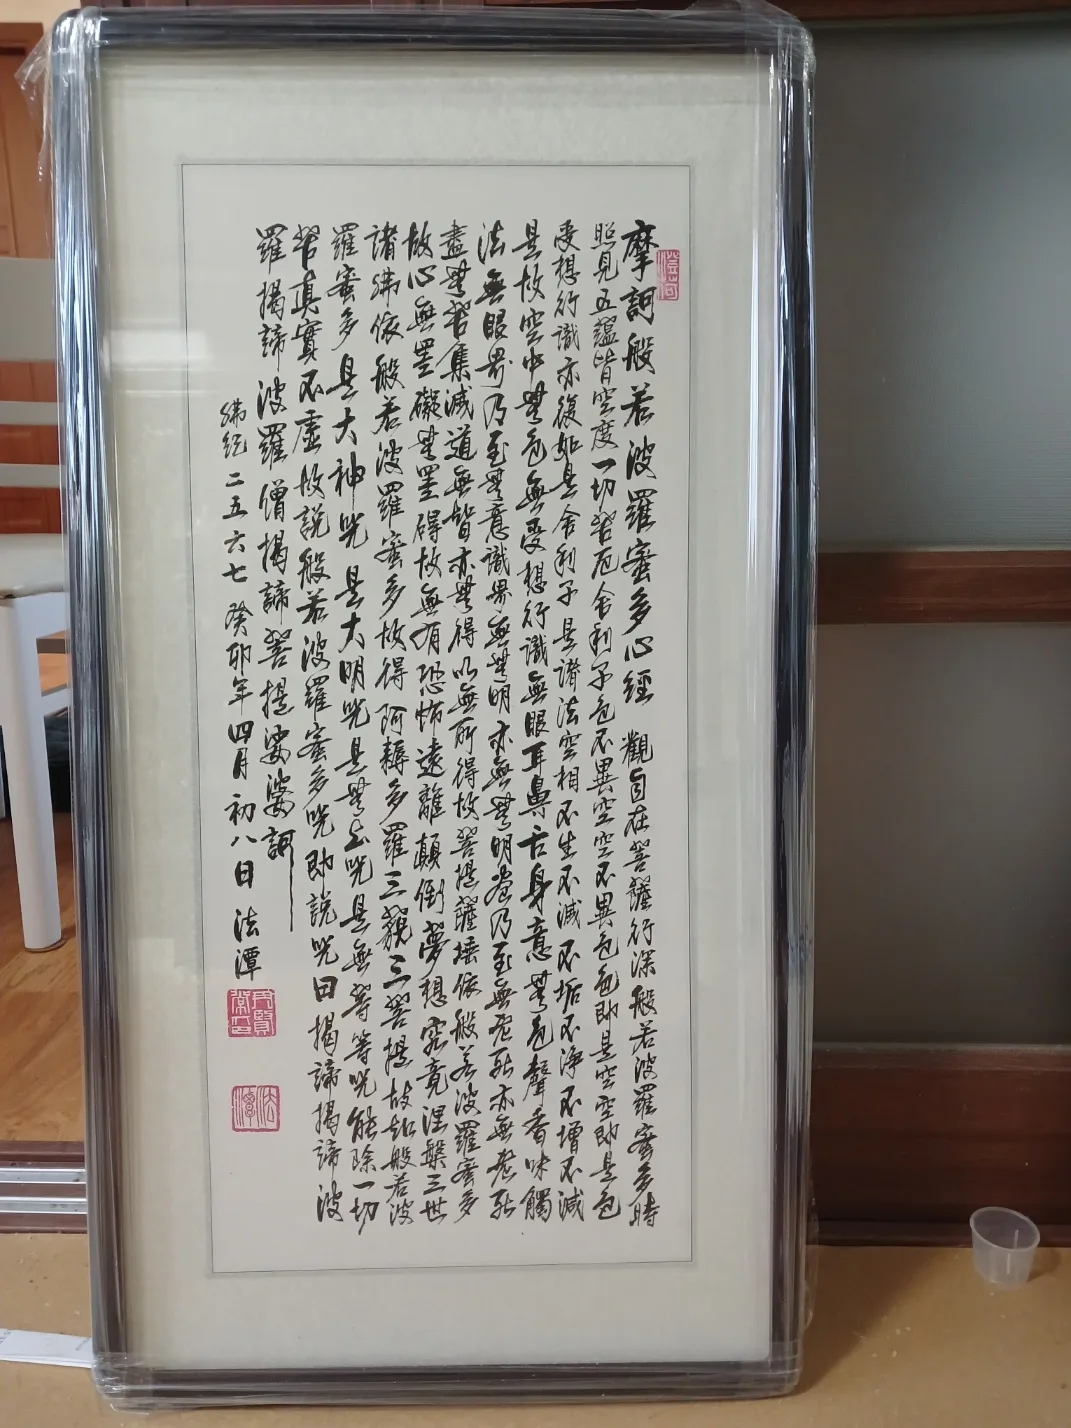 摩訶般若波羅蜜多心經 觀自在菩薩行深般若波羅蜜多時
照見五蘊皆空度一切苦厄舍利子色不異空空不異色色即是空空即是色
受想行識亦復如是舍利子是諸法空相不生不滅不垢不淨不增不減
是故空中無色無受想行識無眼耳鼻舌身意無色聲香味觸
法無眼界乃至無意識界無無明亦無無明盡乃至無老死亦無老死
盡無苦集滅道無智亦無得以無所得故菩提薩埵依般若波羅蜜多
故心無罣礙無罣碍故無有恐怖遠離顛倒夢想究竟涅槃三世
諸佛依般若波羅蜜多故得阿耨多羅三藐三菩提故知般若波
羅蜜多是大神咒是大明咒是無上咒是無等等咒能除一切
苦真實不虛故說般若波羅蜜多咒即說咒曰揭諦揭諦波
羅揭諦波羅僧揭諦菩提娑婆訶
佛紀二五六七癸卯年四月初八日 法潭
法潭